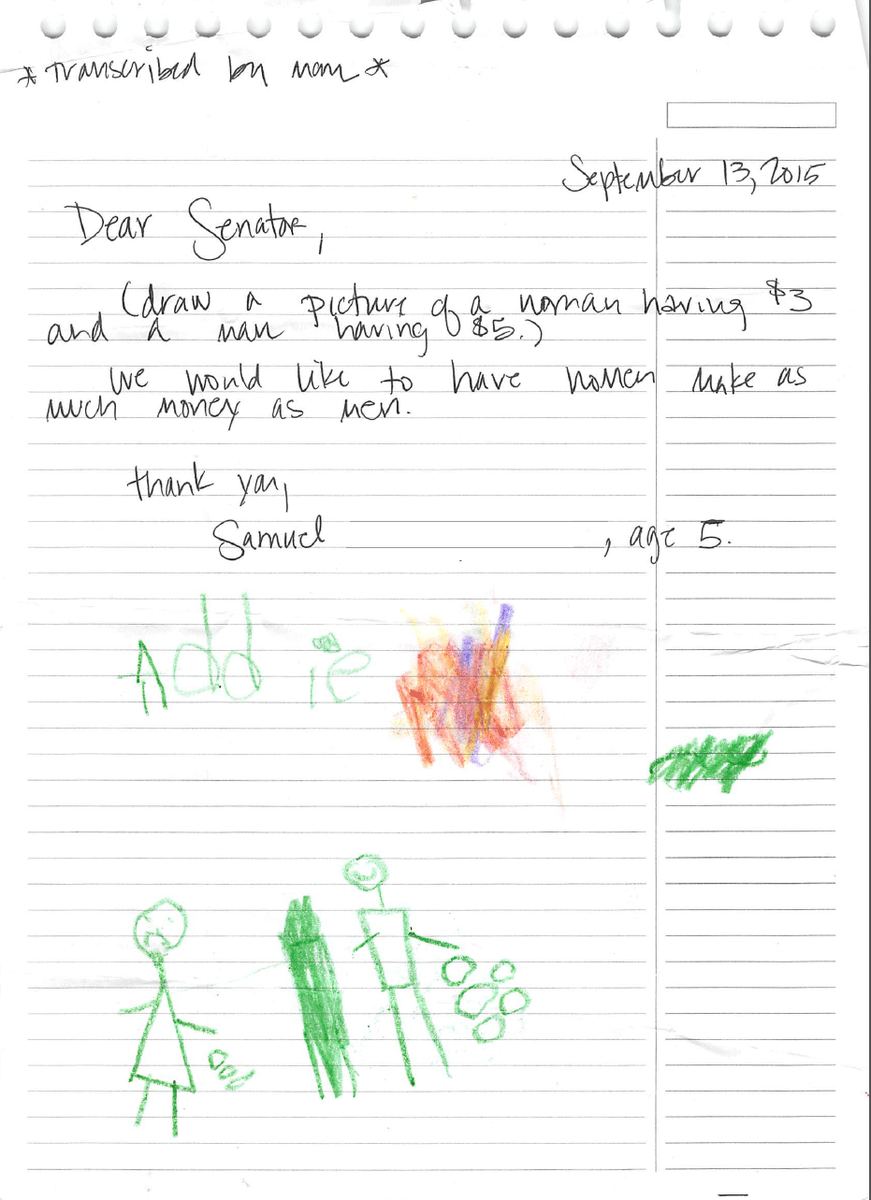 *Transcribed by mom*
September 13, 2015
Dear Senator,
(draw a picture of a woman having $3
and a man having $5.)
We would like to have women make as
much money as men.
thank you,
Samuel , age 5.
Addie